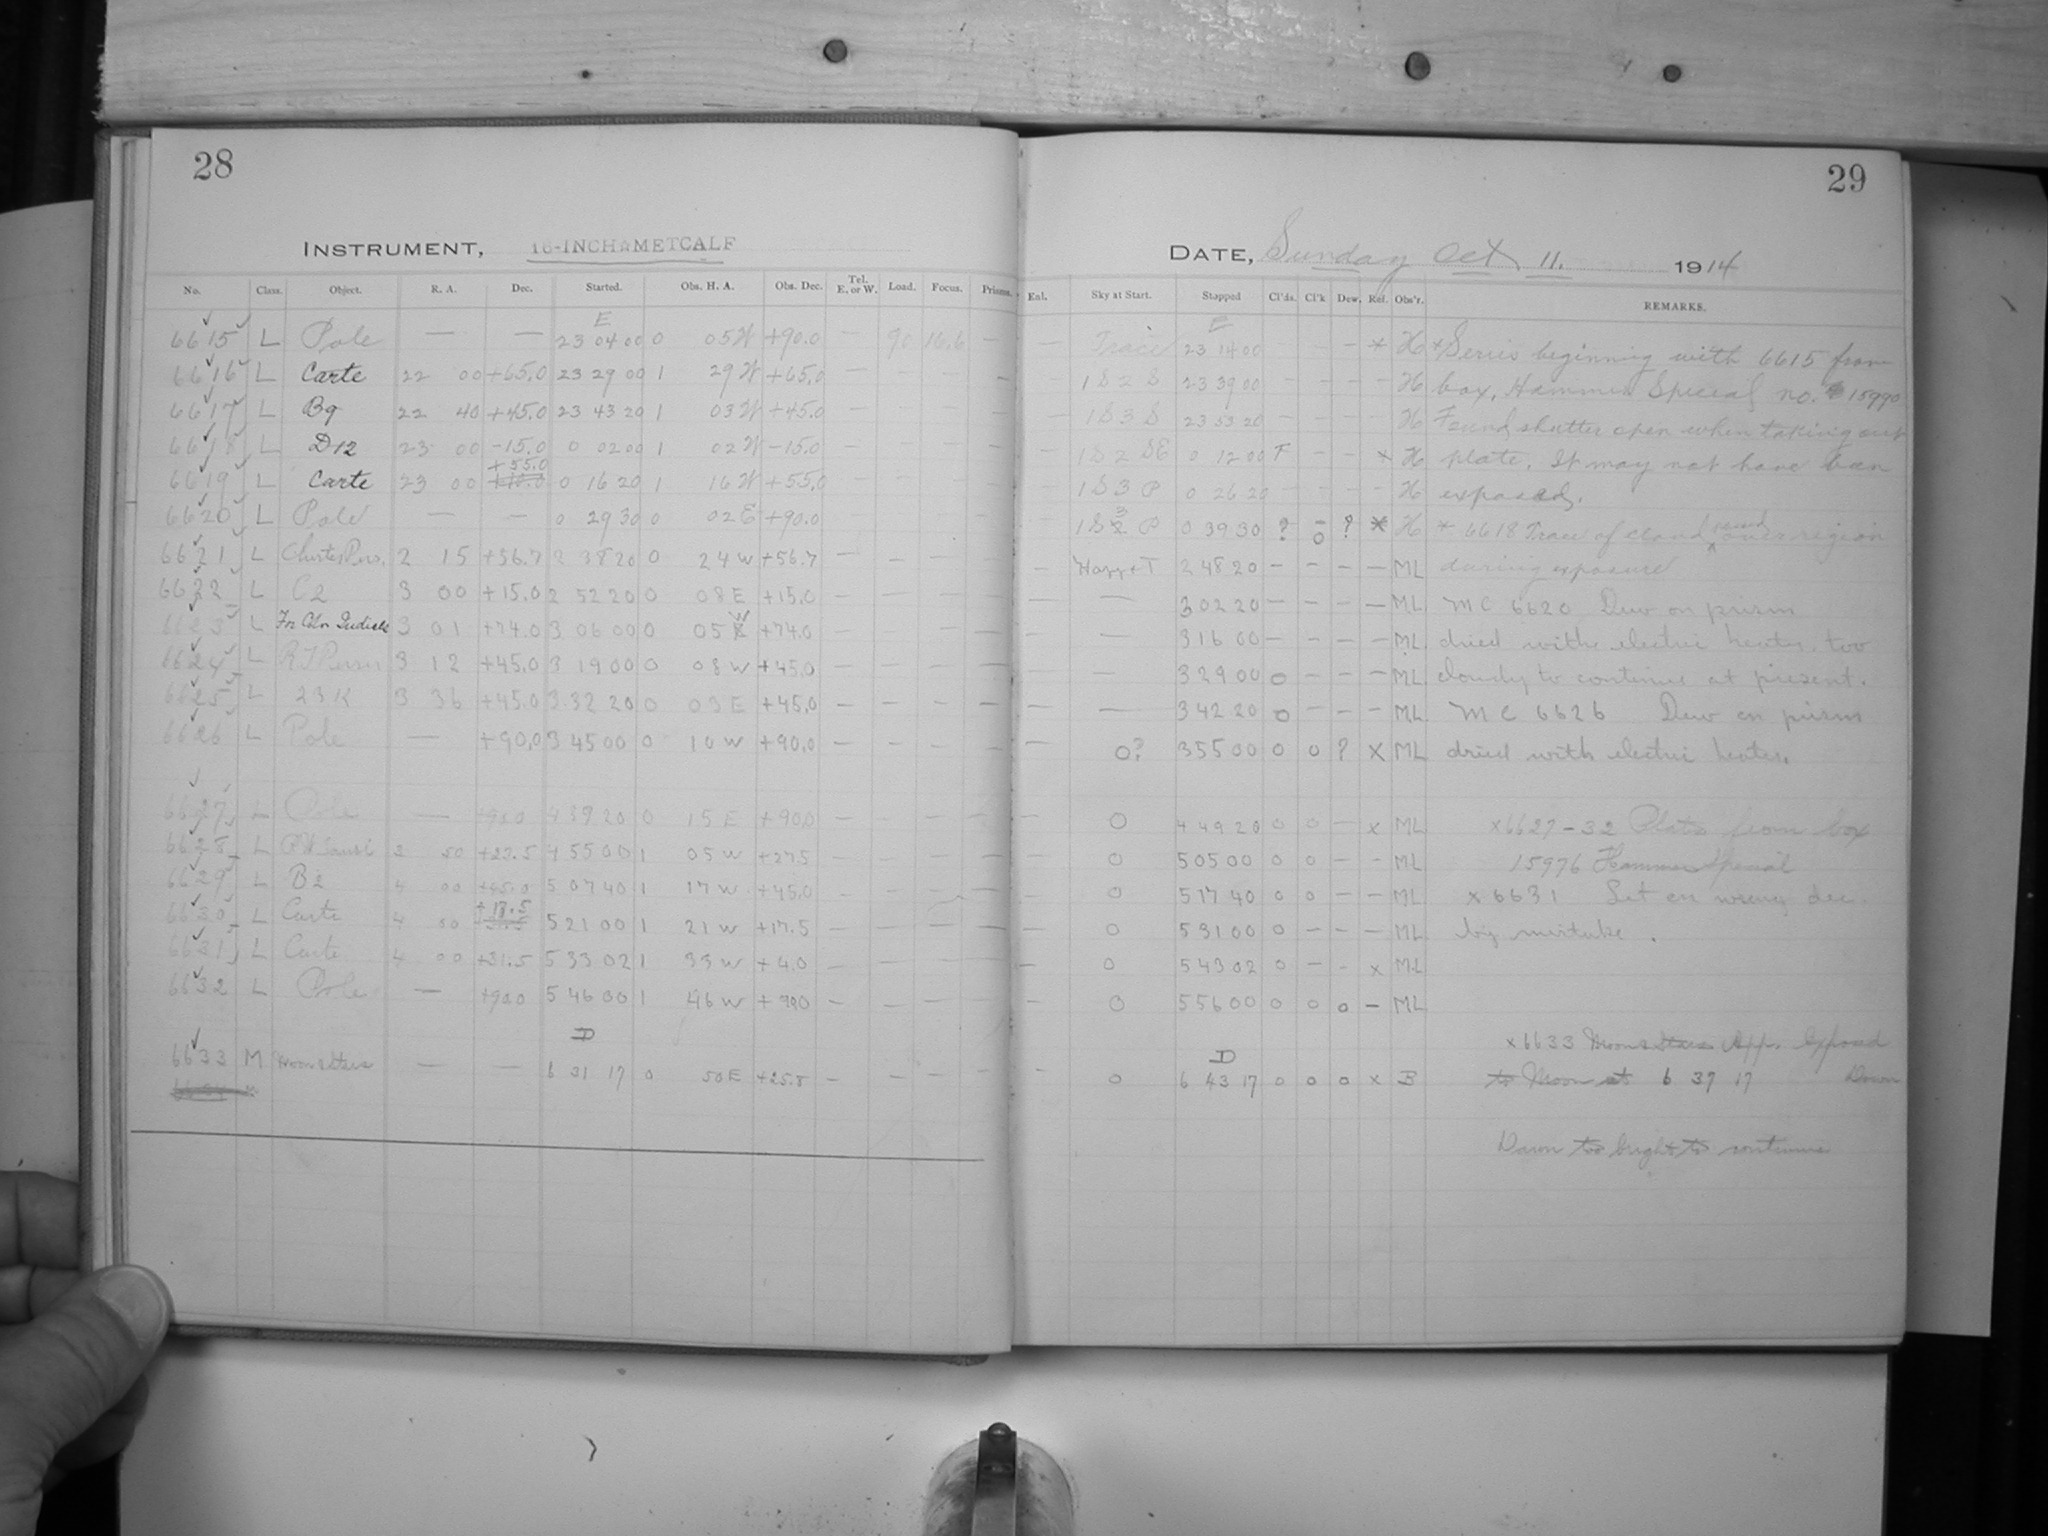 28
INSTRUMENT, 16-INCH METCALF
No. Class. Object. R. A. Dec. Started. Obs. H. A. Obs. Dec. Tel. E. or W. Load. Focus. Prisms.
6615 L Pole — — E 23 04 00 0 05 W +90.0 — 90 16.6 —
6616 L Carte 22 00 +65.0 23 29 00 1 29 W +65.0 — — — —
6617 L B9 22 40 +45.0 23 43 20 1 03 W +45.0 — — — —
6618 L D12 23 00 -15.0 0 02 00 1 02 W -15.0 — — — —
6619 L Carte 23 00 +55.0 0 16 20 1 16 W +55.0 — — — —
6620 L Pole — — 0 29 30 0 02 E +90.0 — — — —
6621 L 2 15 +56.7 2 38 20 0 24 W +56.7 — — — —
6622 L C2 3 00 +15.0 2 52 20 0 08 E +15.0 — — — —
6623 L 3 01 +74.0 3 06 00 0 05 W +74.0 — — — —
6624 L 3 12 +45.0 3 19 00 0 08 W +45.0 — — — —
6625 L 23 K 3 36 +45.0 3 32 20 0 03 E +45.0 — — — —
6626 L Pole — +90.0 3 45 00 0 10 W +90.0 — — — —
6627 L Pole — +90.0 4 39 20 0 15 E +90.0 — — — —
6628 L 3 50 4 55 00 1 05 W +27.5 — — — —
6629 L B2 4 00 +45.0 5 07 40 1 17 W +45.0 — — — —
6630 L Carte 4 00 5 21 00 1 21 W +17.5 — — — —
6631 L Carte 4 00 +31.5 5 33 02 1 33 W +4.0 — — — —
6632 L Pole — +90.0 5 46 00 1 46 W +90.0 — — — —
6633 M Moon & Stars — — D 6 31 17 0 50 E +25.8 — — — —
29
DATE, Sunday Oct 11. 1914
Enl. Sky at Start. Stopped Cl'ds. Cl'k Dew. Ref. Obs'r. REMARKS.
— Trace E 23 14 00 — — — * H * Series beginning with 6615 from
— 1 S 2 S 23 39 00 — — — — H box, Hammer Special no. 15990
— 1 S 3 S 23 53 20 — — — H Found shutter open when taking out
— 1 S 2 SE 0 12 00 F — — * H plate. It may not have been
— 1 S 3 P 0 26 20 — — — — H exposed.
— 1 S 3 P 0 39 30 ? o ? * H * 6618 Trace of cloud passed over region
— Hazy + T 2 48 20 — — — — ML during exposure
— — 3 02 20 — — — — ML MC 6620 Dew on prism
— — 3 16 00 — — — — ML dried with electric heater. too
— — 3 29 00 o — — — ML cloudy to continue at present.
— — 3 42 20 o — — — ML MC 6626 Dew on prism
— o? 3 55 00 o o ? x ML dried with electric heater.
— o 4 49 20 o o — x ML x 6627-32 Plate from box
— o 5 05 00 o o — — ML 15976 Hammer Special
— o 5 17 40 o o — — ML x 6631 Set on wrong dec.
— o 5 31 00 o — — — ML by mistake.
— o 5 43 02 o — — x ML
— o 5 56 00 o o o — ML
x 6633 Moon & Stars App. Exposed
— o D 6 43 17 o o o x B to Moon at 6 37 17 Dawn
Dawn too bright to continue